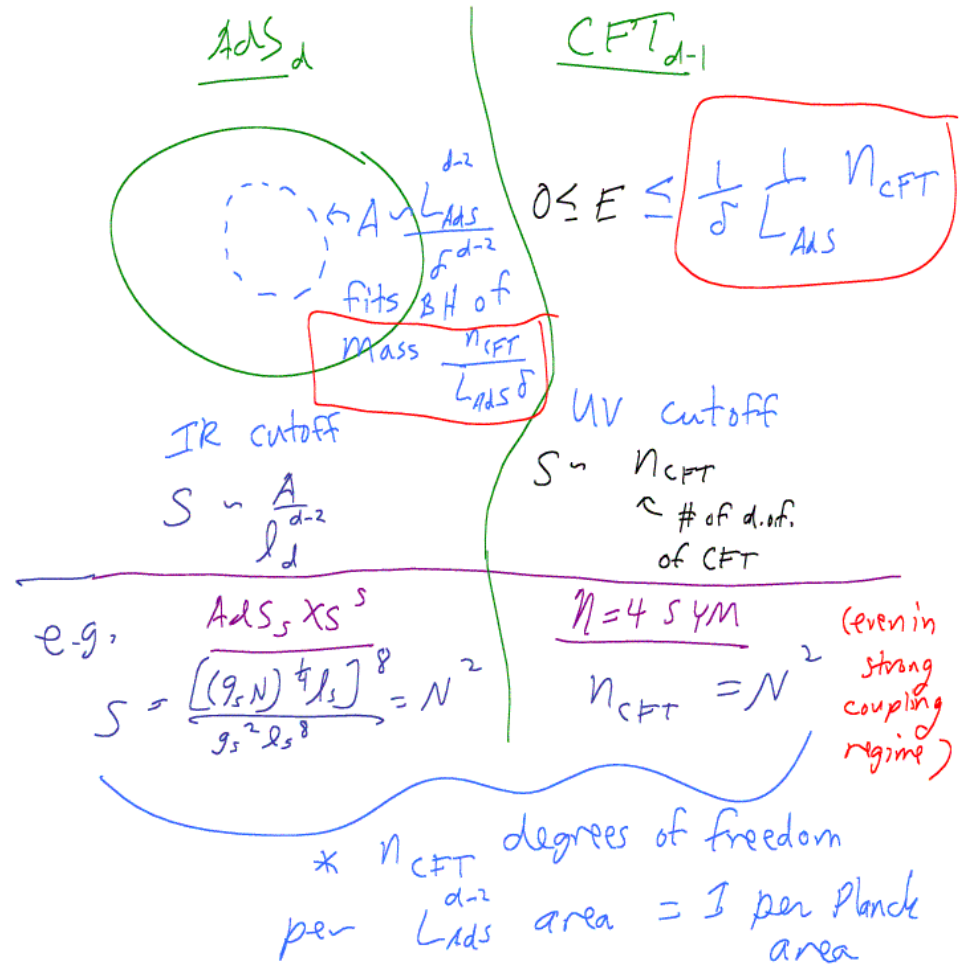 AdS_d
CFT_{d-1}
← A ~ L_{AdS}^{d-2} / δ^{d-2}
fits BH of
mass n_{CFT} / L_{AdS} δ
0 ≤ E ≤ 1/δ 1/L_{AdS} n_{CFT}
IR cutoff
UV cutoff
S ~ A / l_d^{d-2}
S ~ n_{CFT}
↖ # of d.o.f.
of CFT
e.g.
AdS_5 x S^5
S = [(g_s N)^{1/4} l_s]^8 / g_s^2 l_s^8 = N^2
N=4 SYM
n_{CFT} = N^2
(even in
strong
coupling
regime)
* n_{CFT} degrees of freedom
per L_{AdS}^{d-2} area = 1 per Planck
area